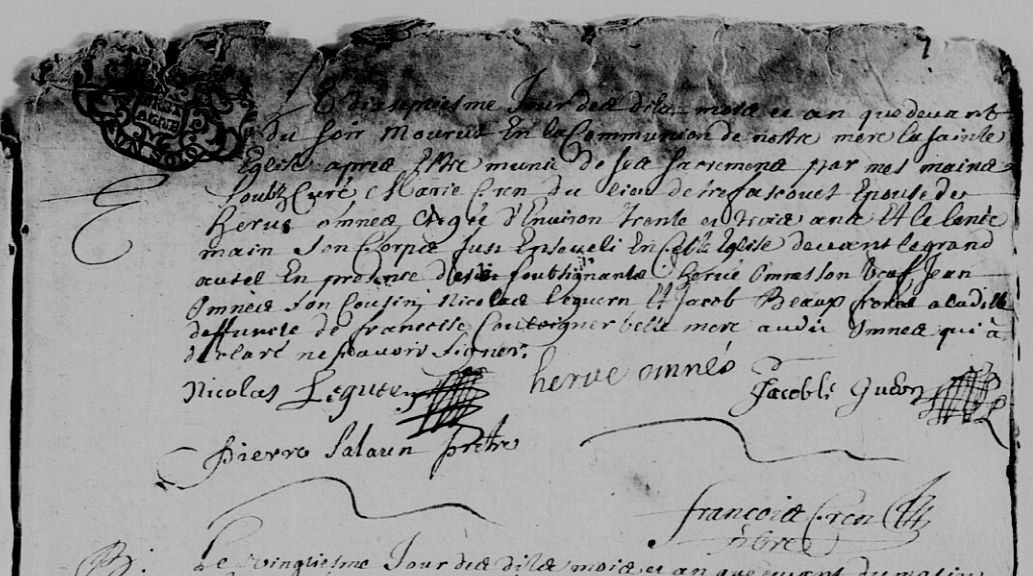 Le dixseptiesme Jour des dits mois et an que devant
du soir mourut En la Communion de nostre mere la sainte
Eglise apres Estre munie de ses sacrements par mes mains
soubz Curé Marie Cren du lieu de Epouse de
Herve omnes Agée d'Environ trente et trois ans Et le lende
main son Corps fust Ensoueli En Cette Eglise devant le grand
autel En presence des soubsignants Hervé Omnes son veuf Jean
Omnes son Cousin Nicolas leguern Et Jacob Beaup frere a ladite
deffuncte de francoise belle mere audit Omnes qui à
declaré ne scavoir signer.
Nicolas Leguern herve omnés Jacob le
pierre salaun prêtre
francois Cren
B: Le vingtiesme Jour des dits mois et an que devant du matin